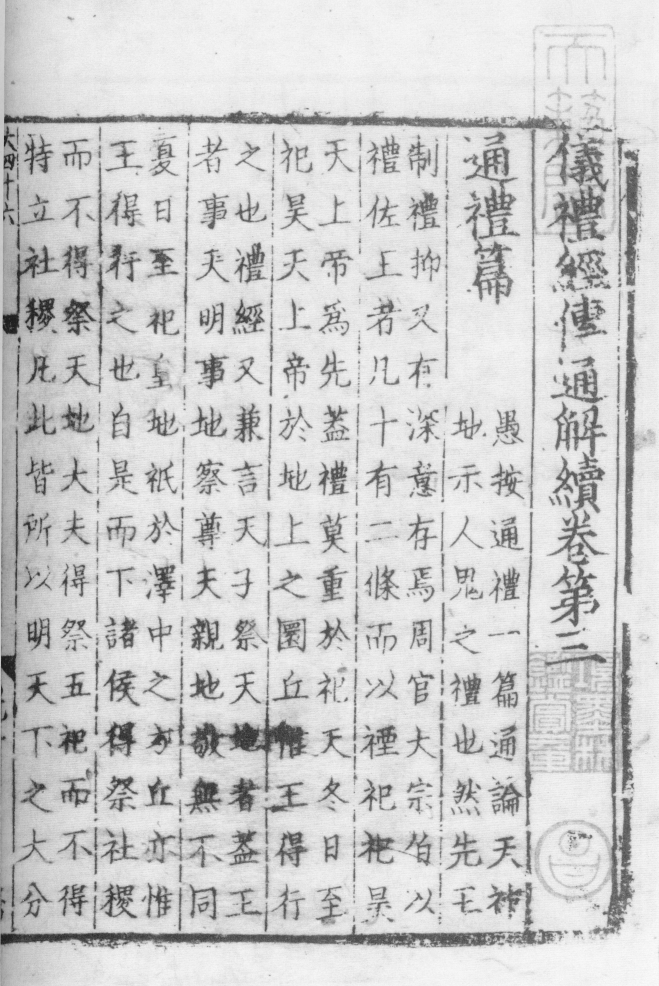 儀禮經傳通解續卷第三
通禮篇
愚按通禮一篇通論天神
地示人鬼之禮也然先王
制禮抑又有深意存焉周官大宗伯以
禮佐王若凡十有二條而以禋祀祀昊
天上帝爲先蓋禮莫重於祀天冬日至
祀昊天上帝於地上之圜丘惟王得行
之也禮經又兼言天子祭天地者蓋王
者事天明事地察尊天親地敬無不同
夏日至祀皇地祇於澤中之方丘亦惟
王得行之也自是而下諸侯得祭社稷
而不得祭天地大夫得祭五祀而不得
特立社稷凡此皆所以明天下之大分
大四十六